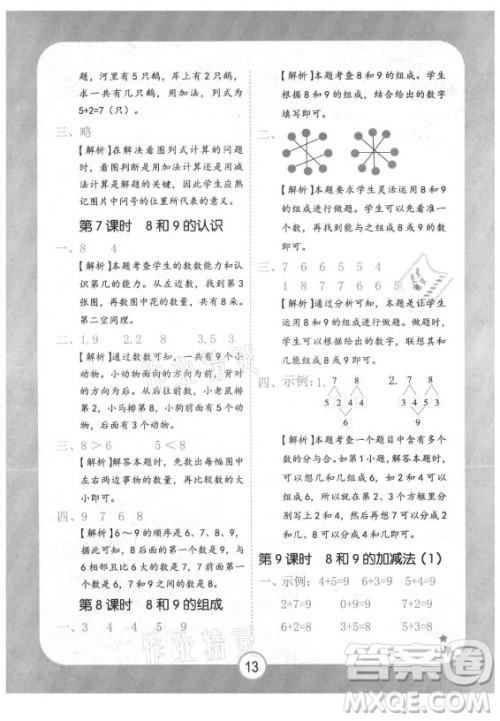 题，河里有5只鹅，岸上有2只鹅，
求一共有几只鹅，用加法，列式为
5+2=7（只）。
三、略
【解析】在解决看图列式计算的问题
时，看图判断是用加法计算还是用
减法计算是解题的关键，因此学生应熟
记图片中问号的位置所代表的意义。
第7课时 8和9的认识
一、8 4
【解析】本题考查学生的数数能力和认
识第几的能力。从左边数，找到第3
张图，再数图中花的数量，共有8朵。
第二空同理。
二、1.9 2.2 8 3.5 3
【解析】通过数数可知，一共有9个小
动物。小动物面向的方向为前，背对
的方向为后。从后往前数，小老鼠排
第2，小马排第8，小狗前面有5个小
动物，后面有3个小动物。
三、8＞6 5＜8 9＞8
【解析】解答本题时，先数出图中
左右两边事物的数量，再比较大
小即可。
四、9 7 6 8
【解析】6～9的顺序是6、7、8、9。
8后面的一个数是9，8前面是7，与
6相邻且比6大的数是7，与7相邻
且比7小的数是6，7和9中间是8。
第8课时 8和9的组成
一、3 4 4 5 9
【解析】本题考查8和9的组成。学生
根据8和9的组成，结合给出的数字
填写即可。
二、
【解析】本题要求学生灵活运用8和9
的组成进行做题。学生可以先看准一
个数，再从剩下的数中找到能与它组
成8或9的数，连线即可。
三、7 6 6 5 5 4
1 2 3 4 5
【解析】通过分析可知，本题是让学生
运用8和9的组成进行做题。学生应
联系8和9的组成，想一想，几和
几能组成8或9即可。
四、示例：1. 7 8 9
2 4 6
2. 7 8 9
5 4 3
【解析】本题考查学生对组合与分成
的掌握。学生分析题目中的数字时，
可以想几和几组成6，如2和4可以
组成6；也可以想6可以分成几和
几，如6可以分成2和4，8可以分成
2和几、8可以分成几和4即可。
第9课时 8和9的加减法（1）
一、示例：4+5=9 6+3=9 7+2=9
2+7=9 3+6=9 5+4=9
6+2=8 3+5=8 2+6=8
13
作业精灵
作业精灵
答案卷
MXQE.COM